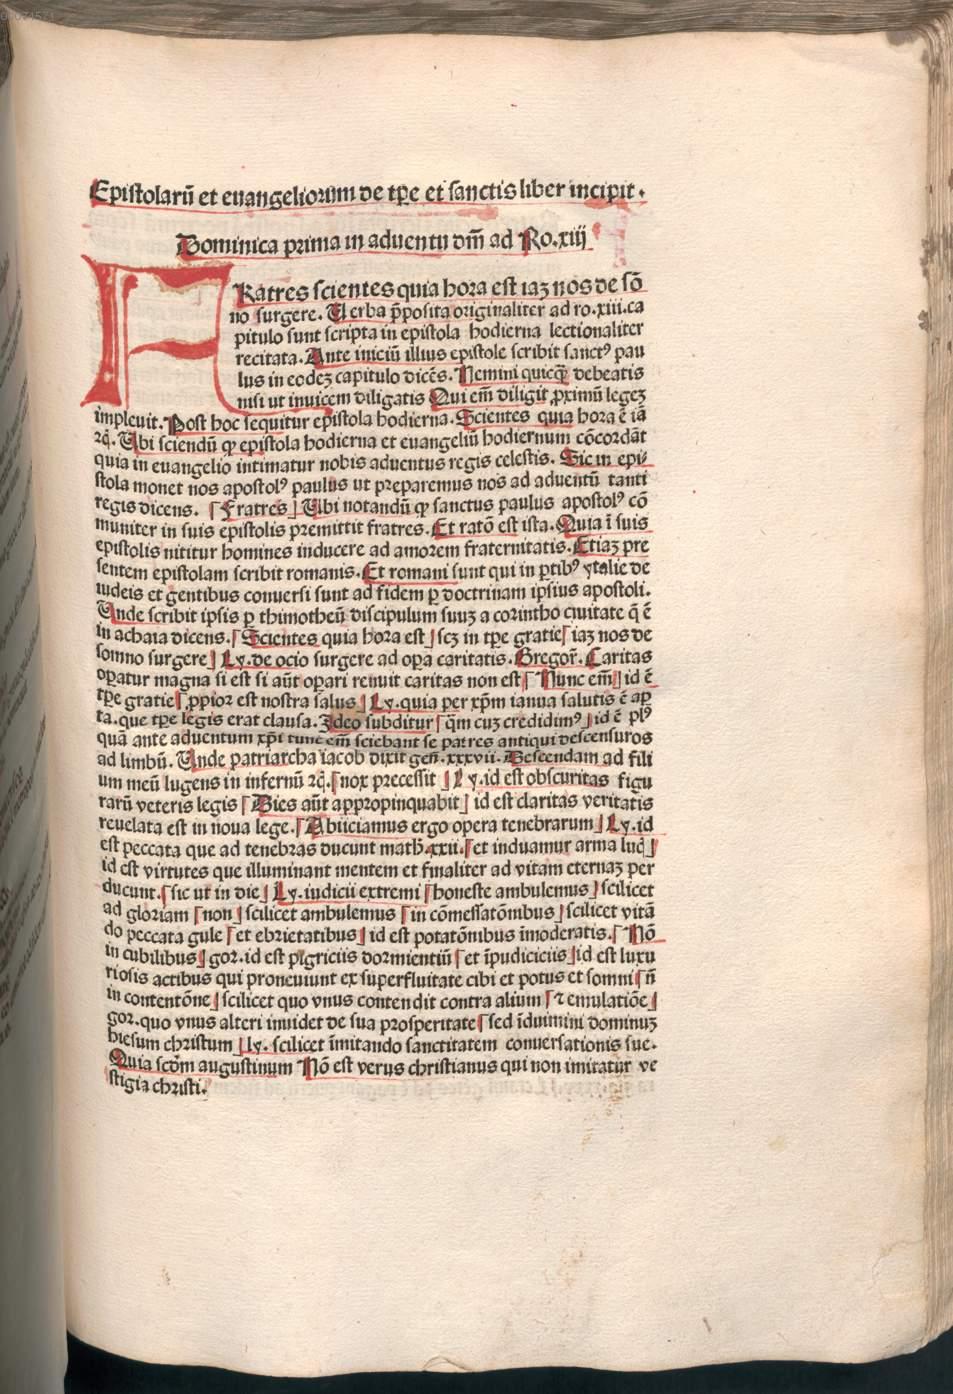 Epistolarū et euangeliorum de tp̄e et sanctis liber incipit.
Dominica prima in aduentu dm̄ ad Ro.xiij
FRatres scientes quia hora est iaꝫ nos de sō
no surgere. Uerba p̄posita originaliter ad ro.xiii.ca
pitulo sunt scripta in epistola hodierna lectionaliter
recitata. Ante iniciū illius epistole scribit sanctꝰ pau
lus in eodeꝫ capitulo dicēs. Nemini quicꝙ̄ debeatis
nisi ut inuicem diligatis Qui em̄ diligit ꝓximū legeꝫ
impleuit. Post hoc sequitur epistola hodierna. Scientes quia hora ē iā
ꝛq̄. Ubi sciendū ꝙ epistola hodierna et euangeliū hodiernum cōcordāt
quia in euangelio intimatur nobis aduentus regis celestis. Sic in epi⸗
stola monet nos apostolꝰ paulus ut preparemus nos ad aduentū tanti
regis dicens. [Fratres] Ubi notandū ꝙ sanctus paulus apostolꝰ cō
muniter in suis epistolis premittit fratres. Et ratō est ista. Quia ī suis
epistolis nititur homines inducere ad amorem fraternitatis. Etiaꝫ pre
sentem epistolam scribit romanis. Et romani sunt qui in ꝑtibꝰ ytalie de
iudeis et gentibus conuersi sunt ad fidem ꝑ doctrinam ipsius apostoli.
Unde scribit ipsis ꝑ thimotheū discipulum suuꝫ a corintho ciuitate q̄ ē
in achaia dicens. [Scientes quia hora est] scꝫ in tp̄e gratie [iaꝫ nos de
somno surgere] Ly. de ocio surgere ad oꝑa caritatis. Gregor̄. Caritas
oꝑatur magna si est si aūt oꝑari renuit caritas non est [Nunc em̄] id ē
tp̄e gratie [ꝓpior est nostra salus] Ly. quia per xp̄m ianua salutis ē aꝑ
ta. que tp̄e legis erat clausa. Ideo subditur [q̄m cuꝫ credidimꝰ] id ē plꝰ
quā ante aduentum xp̄i tunc em̄ sciebant se patres antiqui descensuros
ad limbū. Unde patriarcha iacob dixit gen̄. xxxvii. Descendam ad fili
um meū lugens in infernū ꝛq̄. [nox precessit] Ly. id est obscuritas figu
rarū veteris legis [Dies aūt appropinquabit] id est claritas veritatis
reuelata est in noua lege. [Abiiciamus ergo opera tenebrarum] Ly. id
est peccata que ad tenebras ducunt math̄. xxii. [et induamur arma luc̄]
id est virtutes que illuminant mentem et finaliter ad vitam eternaꝫ per
ducunt. [sic ut in die] Ly. iudicii extremi [honeste ambulemus] scilicet
ad gloriam [non] scilicet ambulemus [in cōmessatōnibus] scilicet vitā
do peccata gule [et ebrietatibus] id est potatōnibus īmoderatis. [Nō
in cubilibus] gor. id est pigriciis dormientiū [et īpudiciciis] id est luxu
riosis actibus qui proueniunt ex superfluitate cibi et potus et somni [n̄
in contentōne] scilicet quo vnus contendit contra alium [⁊ emulatiōe]
gor. quo vnus alteri inuidet de sua prosperitate [sed īduimini dominuꝫ
hiesum christum] ly. scilicet īmitando sanctitatem conuersationis sue.
Quia scd̄m augustinum Nō est verus christianus qui non imitatur ve
stigia christi.